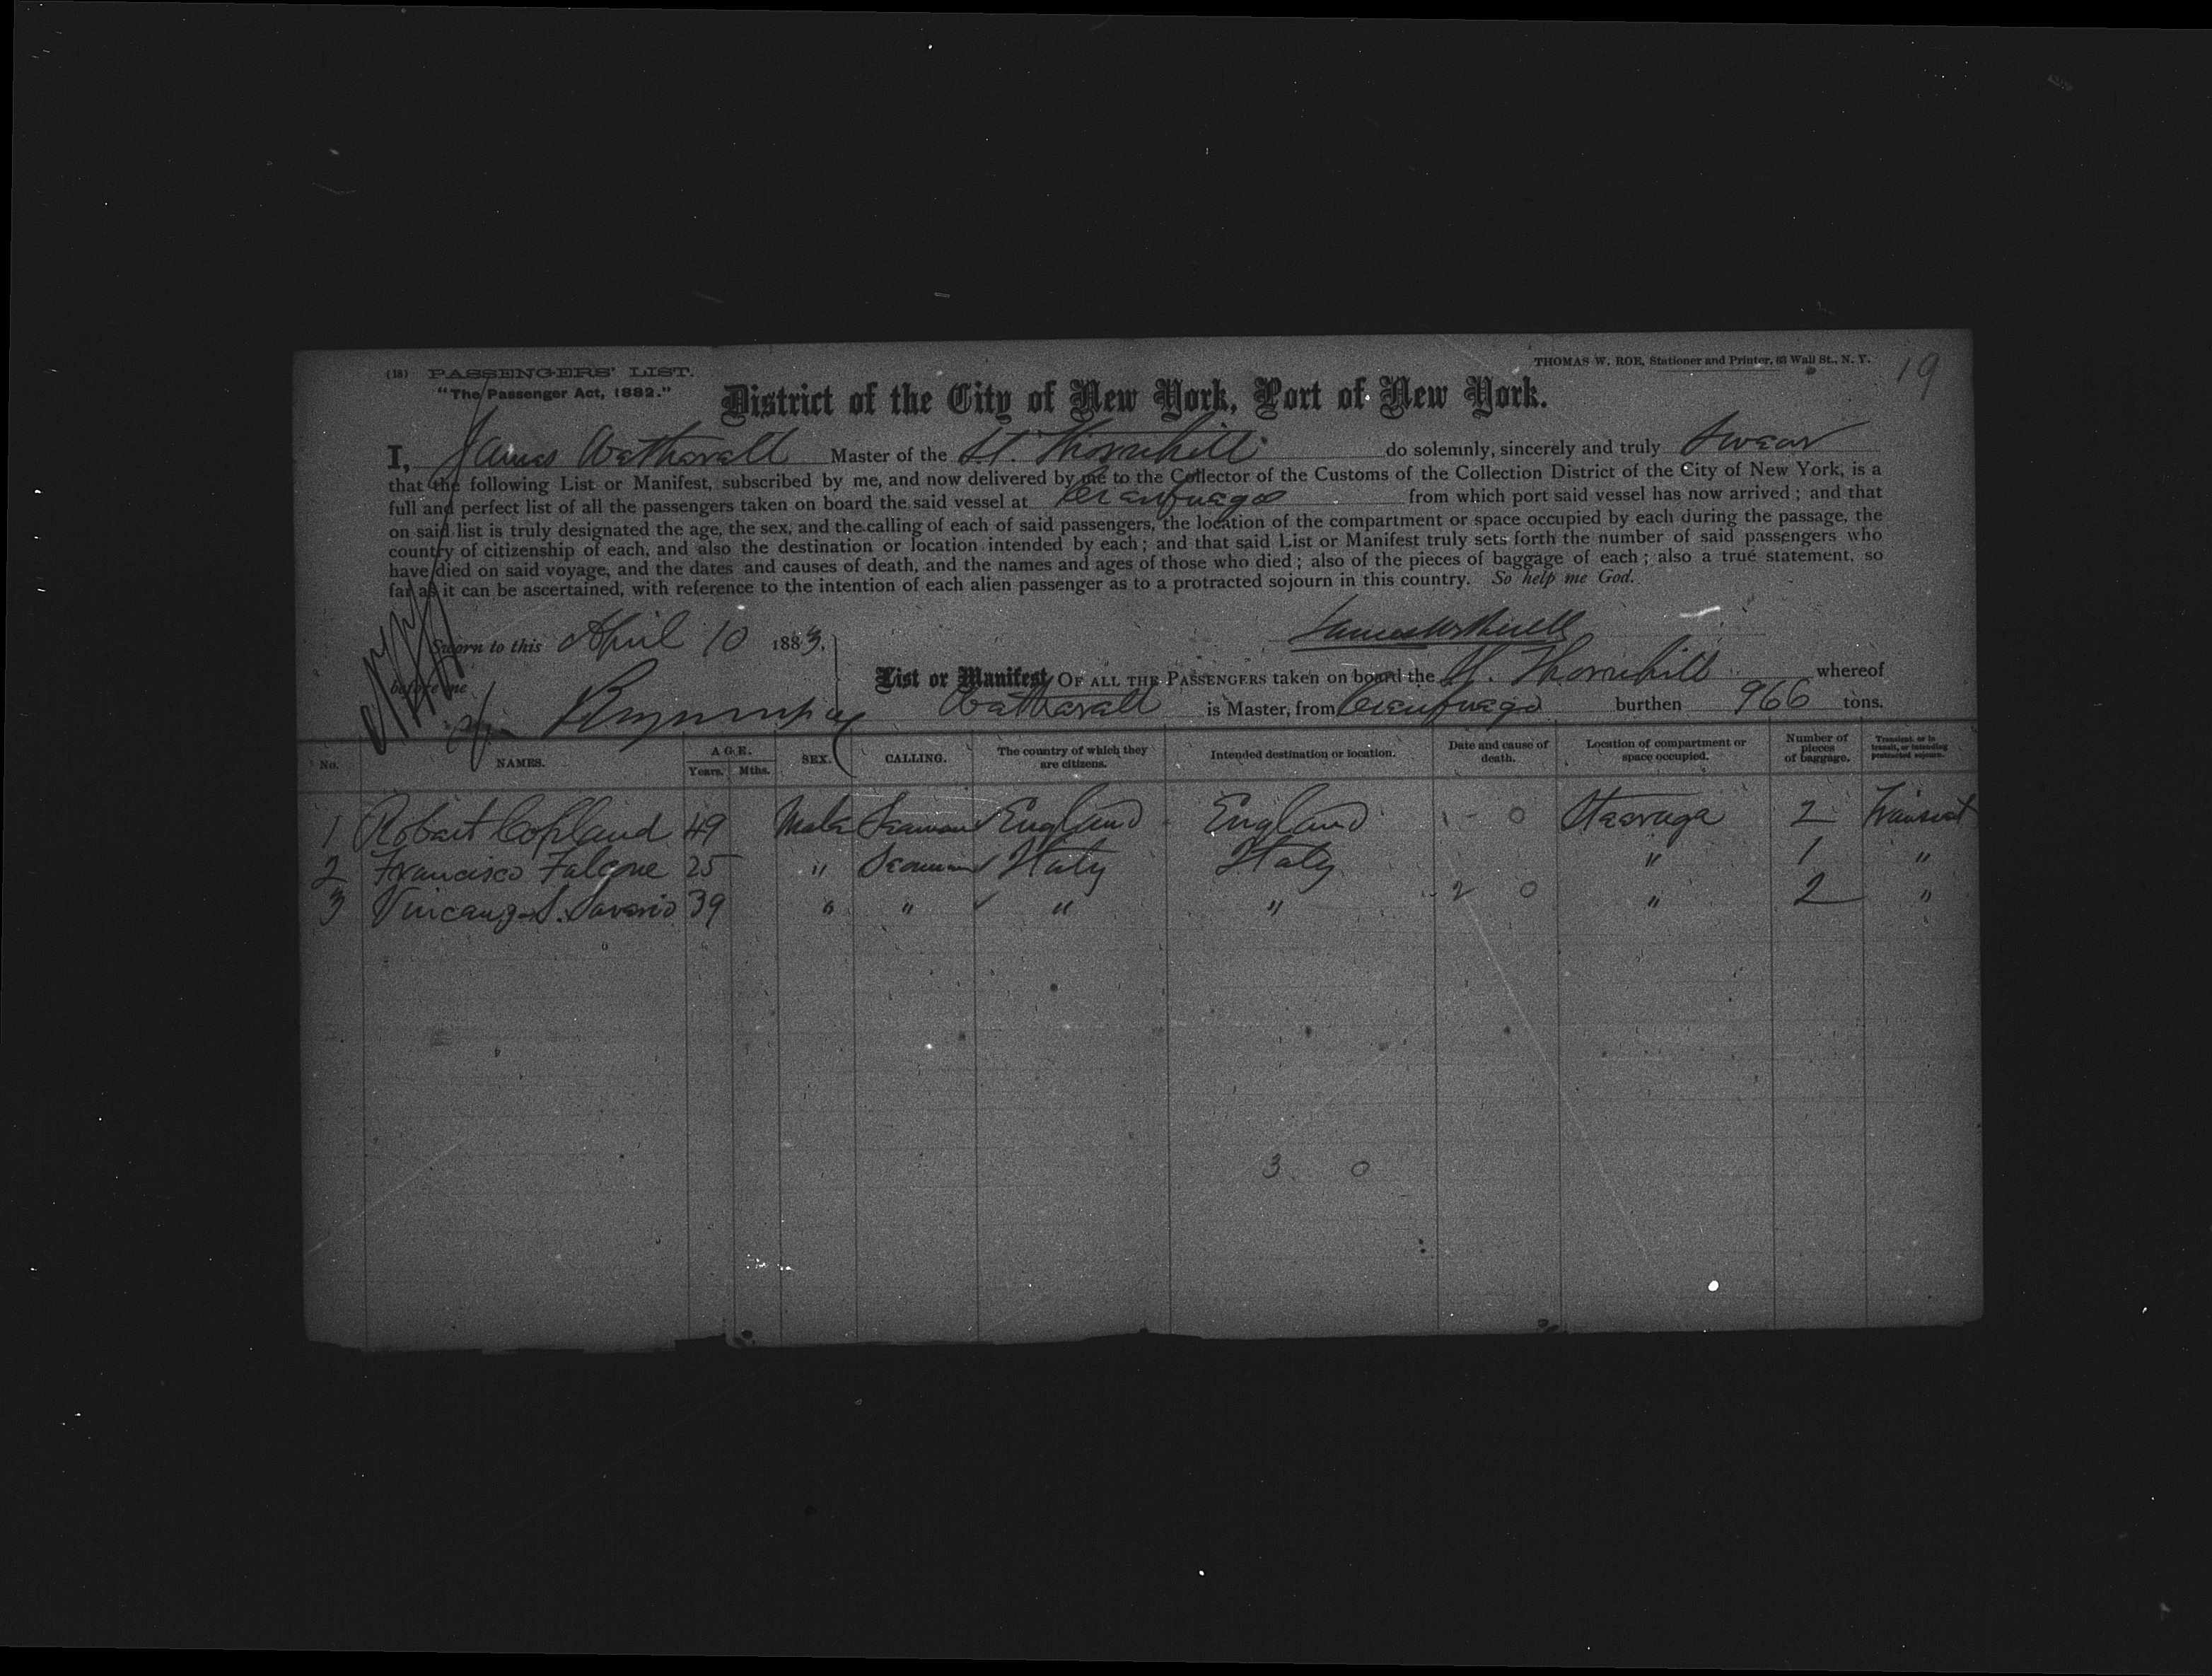 (18) PASSENGERS' LIST.
THOMAS W. ROE, Stationer and Printer, 83 Wall St., N. Y.
19
"The Passenger Act, 1882."
District of the City of New York, Port of New York.
I, James Watherall Master of the St. Thornhill do solemnly, sincerely and truly Swear
that the following List or Manifest, subscribed by me, and now delivered by me to the Collector of the Customs of the Collection District of the City of New York, is a
full and perfect list of all the passengers taken on board the said vessel at Cienfuegos from which port said vessel has now arrived; and that
on said list is truly designated the age, the sex, and the calling of each of said passengers, the location of the compartment or space occupied by each during the passage, the
country of citizenship of each, and also the destination or location intended by each; and that said List or Manifest truly sets forth the number of said passengers who
have died on said voyage, and the dates and causes of death, and the names and ages of those who died; also of the pieces of baggage of each; also a true statement, so
far as it can be ascertained, with reference to the intention of each alien passenger as to a protracted sojourn in this country. So help me God.
Sworn to this April 10 1883,
before me
List or Manifest OF ALL THE PASSENGERS taken on board the St. Thornhill whereof
Watherall is Master, from Cienfuegos burthen 966 tons.
No. NAMES. AGE. Years. Mths. SEX. CALLING. The country of which they are citizens. Intended destination or location. Date and cause of death. Location of compartment or space occupied. Number of pieces of baggage. Transient, or in transit, or intending protracted sojourn.
1 Robert Copland 49 Male Seaman England England 1 - 0 Steerage 2 Transit
2 Francisco Falcone 25 " Seaman Italy Italy " 1 "
3 S. Savario 39 " " " " 2 0 " 2 "
3 0